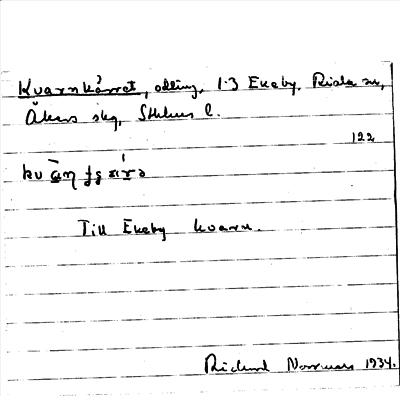 Kvarnkärret, odling, 1-3 Ekeby, Riala sn,
Åkers skg, Sthlms l.
122
Till Ekeby kvarn.
Rickard 1934.